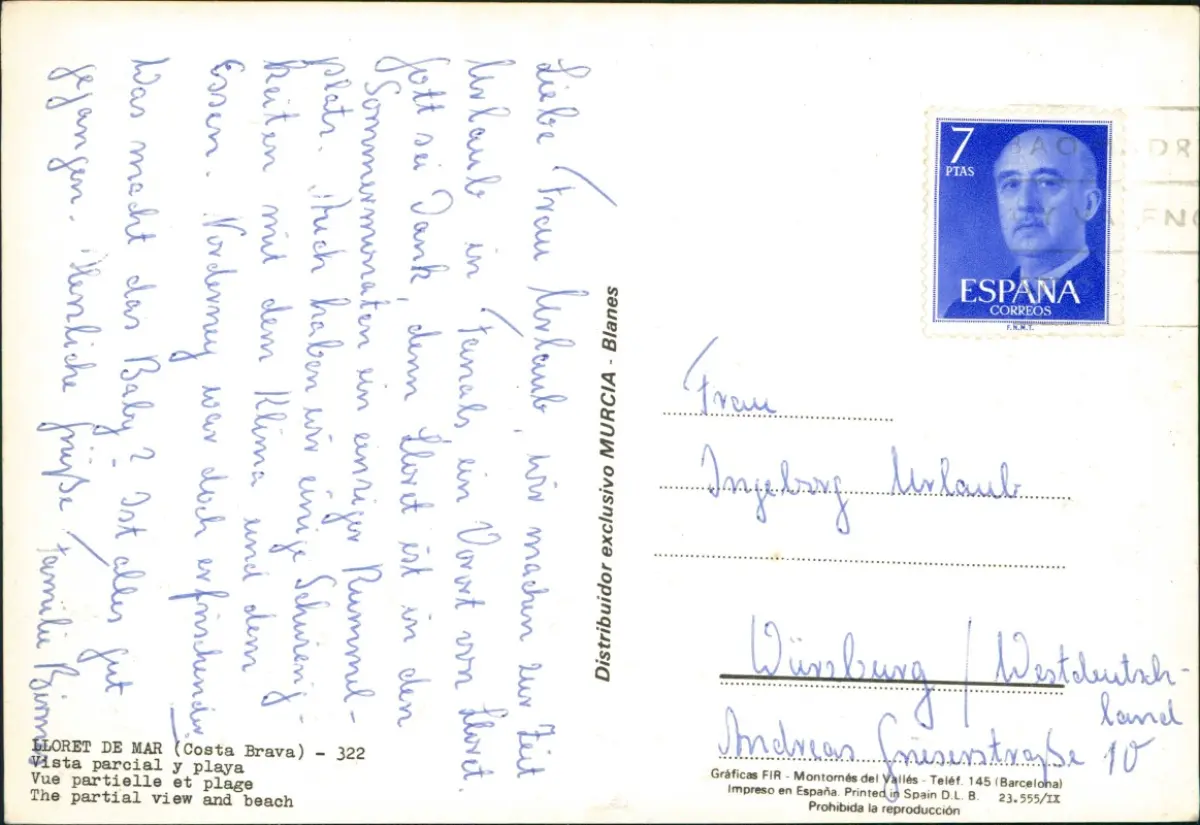 Liebe Frau Urlaub, wir machen zur Zeit
Urlaub in Fanals, ein Vorort von Lloret.
Gott sei Dank, denn Lloret ist in den
Sommermonaten ein einziger Rummel-
platz. Auch haben wir einige Schwierig-
keiten mit dem Klima und dem
Essen. Norderney war doch erfrischender!
Was macht das Baby? Ist alles gut
gegangen. Herzliche Grüße Familie
LLORET DE MAR (Costa Brava) - 322
Vista parcial y playa
Vue partielle et plage
The partial view and beach
Distribuidor exclusivo MURCIA - Blanes
7
PTAS
ESPAÑA
CORREOS
F.N.M.T.
Frau
Ingeborg Urlaub
Würzburg / Westdeutsch-
land
Andreas Grieserstraße 10
Gráficas FIR - Montornés del Vallés - Teléf. 145 (Barcelona)
Impreso en España. Printed in Spain D.L. B. 23.555/IX
Prohibida la reproducción